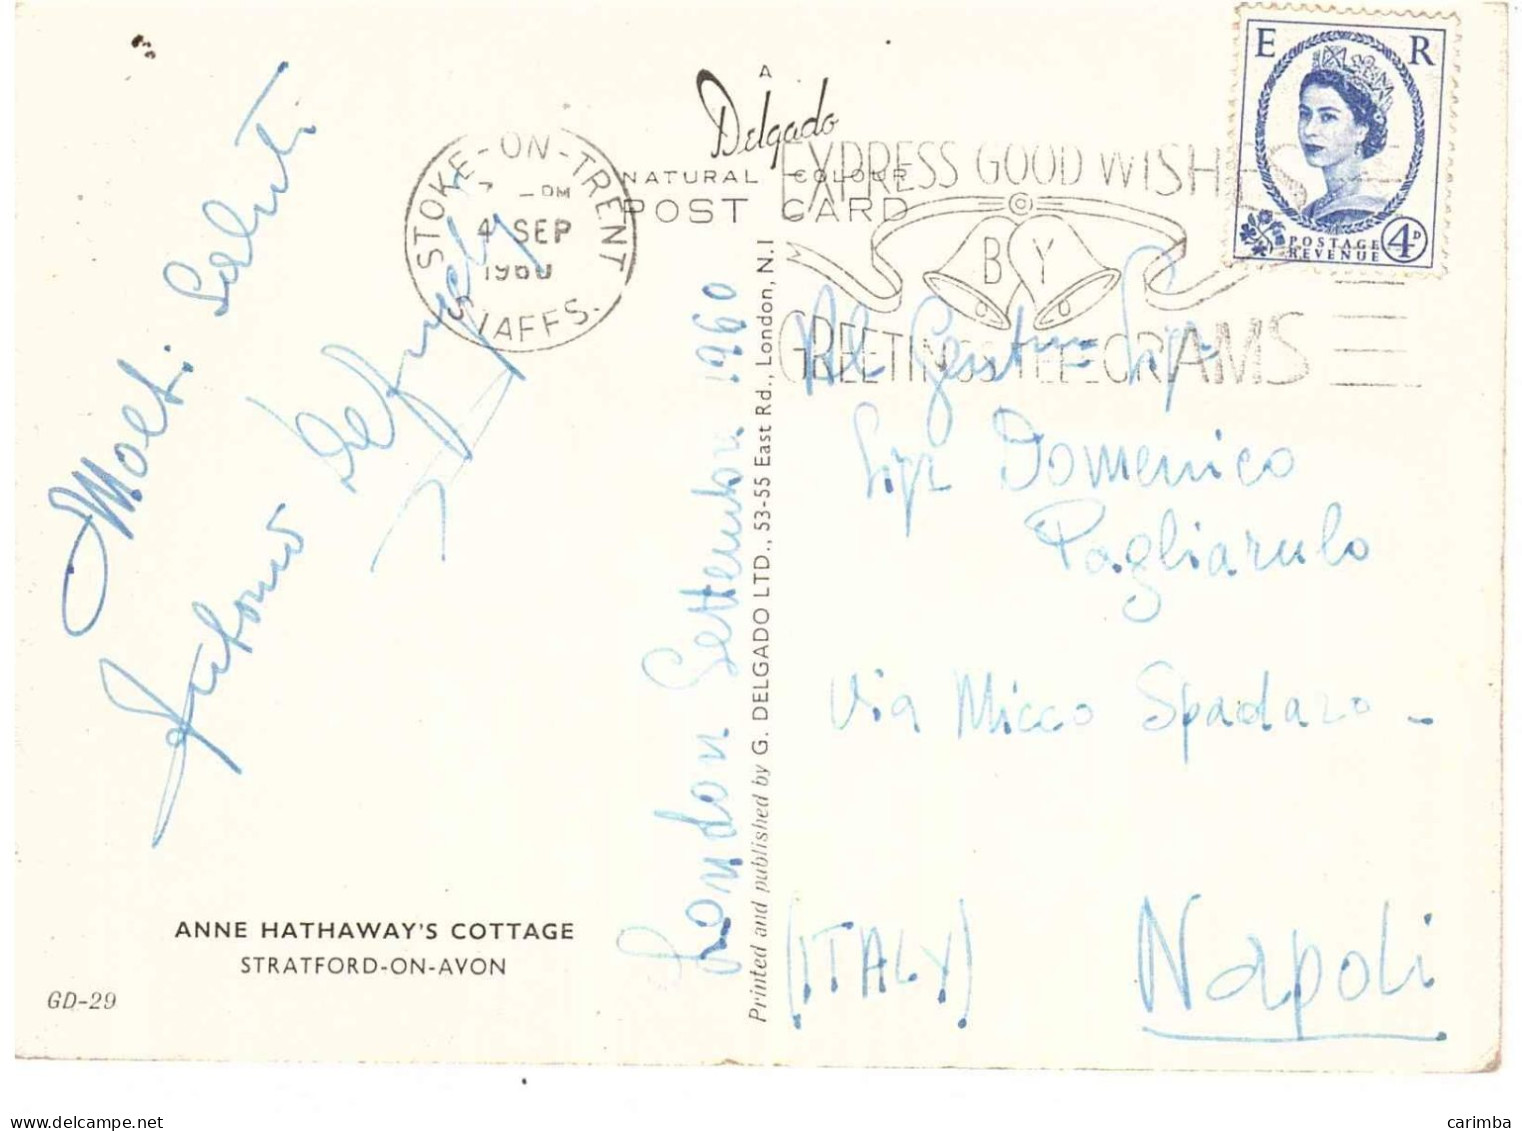 A
Delgado
NATURAL COLOUR
POST CARD
STOKE-ON-TRENT
PM
4 SEP
1960
STAFFS.
EXPRESS GOOD WISHES
BY
GREETINGS TELEGRAMS
E R
POSTAGE
REVENUE
4D
Molti Saluti
Antonio
London Settembre 1960
Printed and published by G. DELGADO LTD., 53-55 East Rd., London, N.1
Al Gent.mo Sig
Sigr Domenico
Pagliarulo
Via Micco Spadaro -
(ITALY) Napoli
ANNE HATHAWAY'S COTTAGE
STRATFORD-ON-AVON
GD-29
carimba